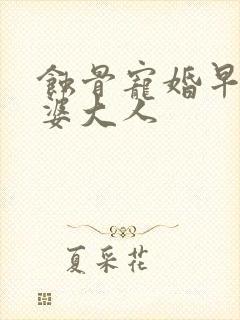 蝕骨寵婚早
婆大人
夏采花